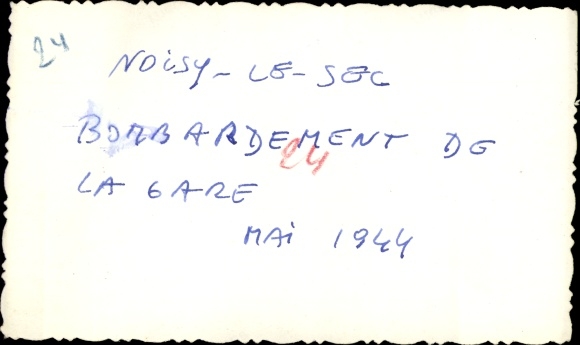 24
NOISY-LE-SEC
BOMBARDEMENT DE
24
LA GARE
MAI 1944